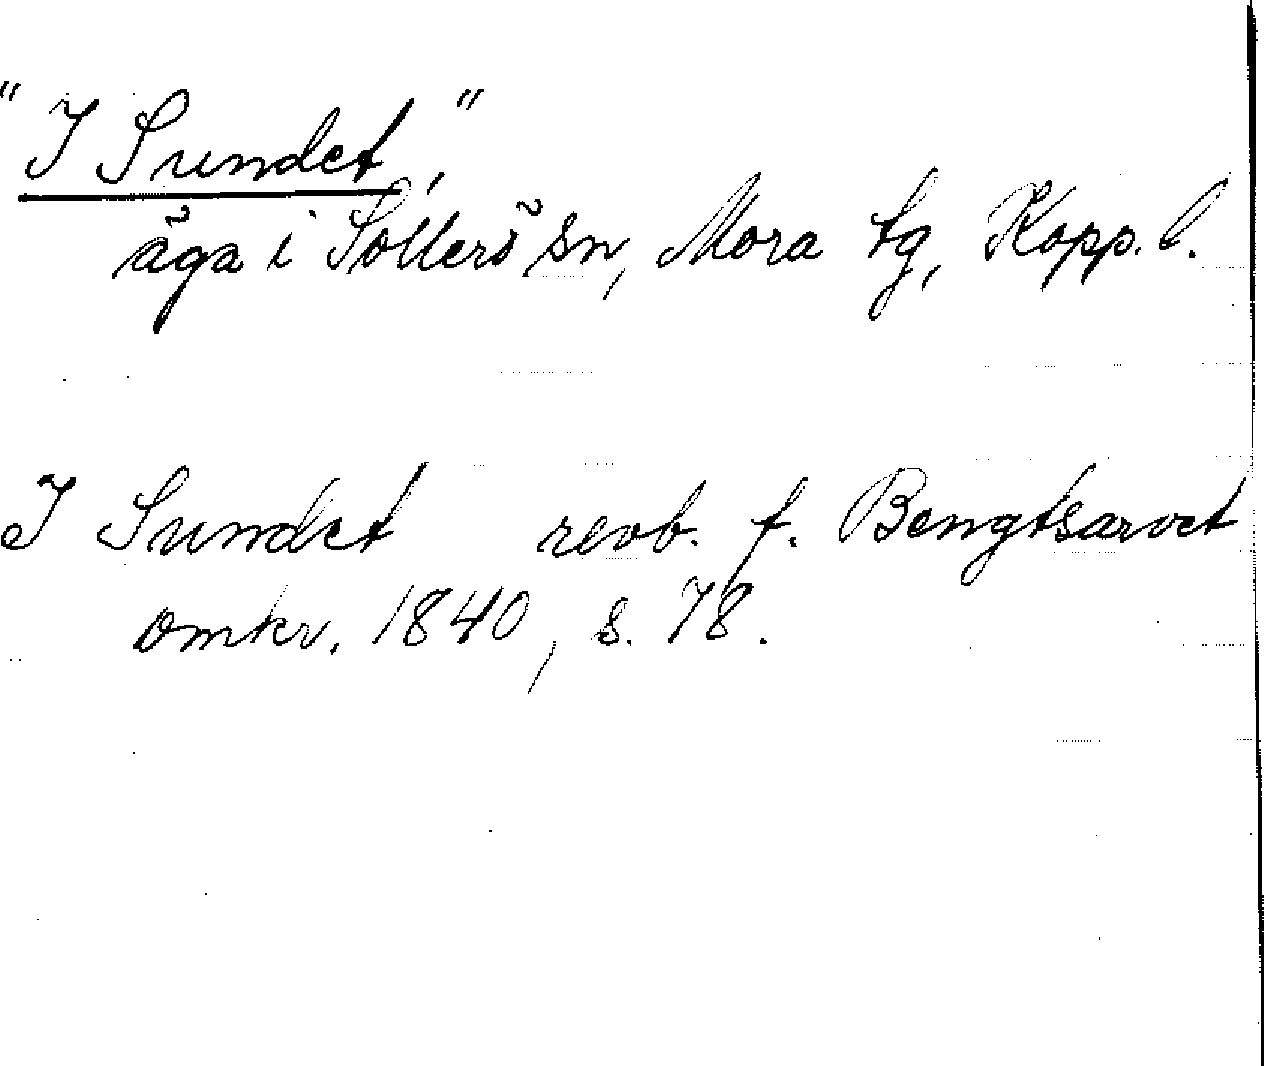 "I Sundet,"
äga i Sollerö sn, Mora tg, Kopp. l.
I Sundet revb. f. Bengtsarvet
omkr. 1840, s. 78.